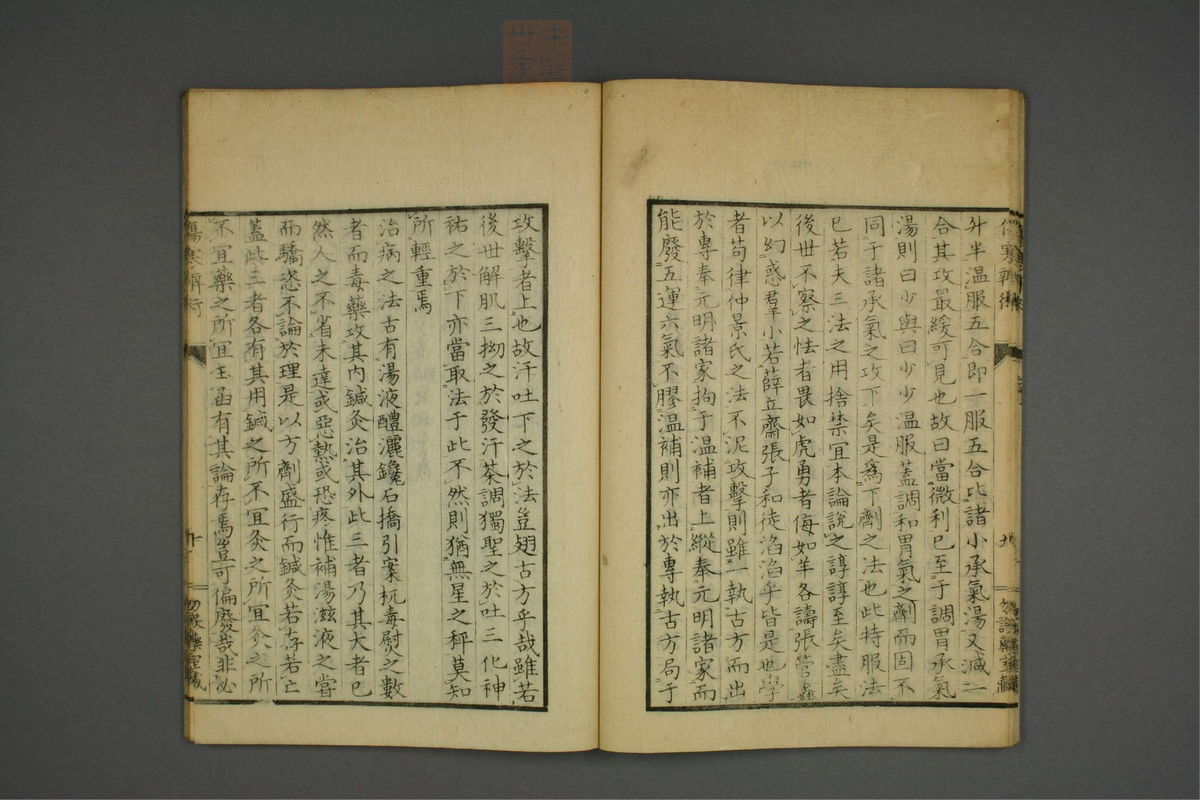 升半温服五合即一服五合比諸小承氣湯又減二
合其攻最緩可見也故曰當微利已至于調胃承氣
湯則曰少與曰少少温服蓋調和胃氣之劑而固不
同于諸承氣之攻下矣是爲下劑之法也此特服法
已若夫三法之用捨禁宜本論說之諄諄至矣盡矣
後世不察之怯者畏如虎勇者侮如羊各譸張管蠡
以幻惑羣小若薛立齋張子和徒滔滔乎皆是也學
者苟律仲景氏之法不泥攻擊則雖一執古方而出
於專奉元明諸家拘于温補者上縱奉元明諸家而
能廢五運六氣不膠温補則亦出於專執古方局于
攻擊者上也故汗吐下之於法豈翅古方乎哉雖若
後世解肌三拗之於發汗茶調獨聖之於吐三化神
祐之於下亦當取法于此不然則猶無星之秤莫知
所輕重焉
治病之法古有湯液醴灑鑱石撟引案杬毒熨之數
者而毒藥攻其内鍼灸治其外此三者乃其大者已
然人之不省未達或惡熱或恐疼惟補湯滋液之當
而驕恣不論於理是以方劑盛行而鍼灸若存若亡
蓋此三者各有其用鍼之所不宜灸之所宜灸之所
不宜藥之所宜玉函有其論存焉豈可偏廢哉非必
傷寒辨術
十